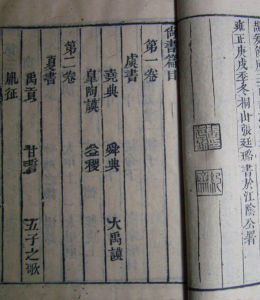 雍正庚戌季冬桐山張廷璐書於江陰公署
尚書篇目
第一卷
虞書
堯典 舜典 大禹謨
皐陶謨 益稷
第二卷
夏書
禹貢 甘誓 五子之歌
胤征